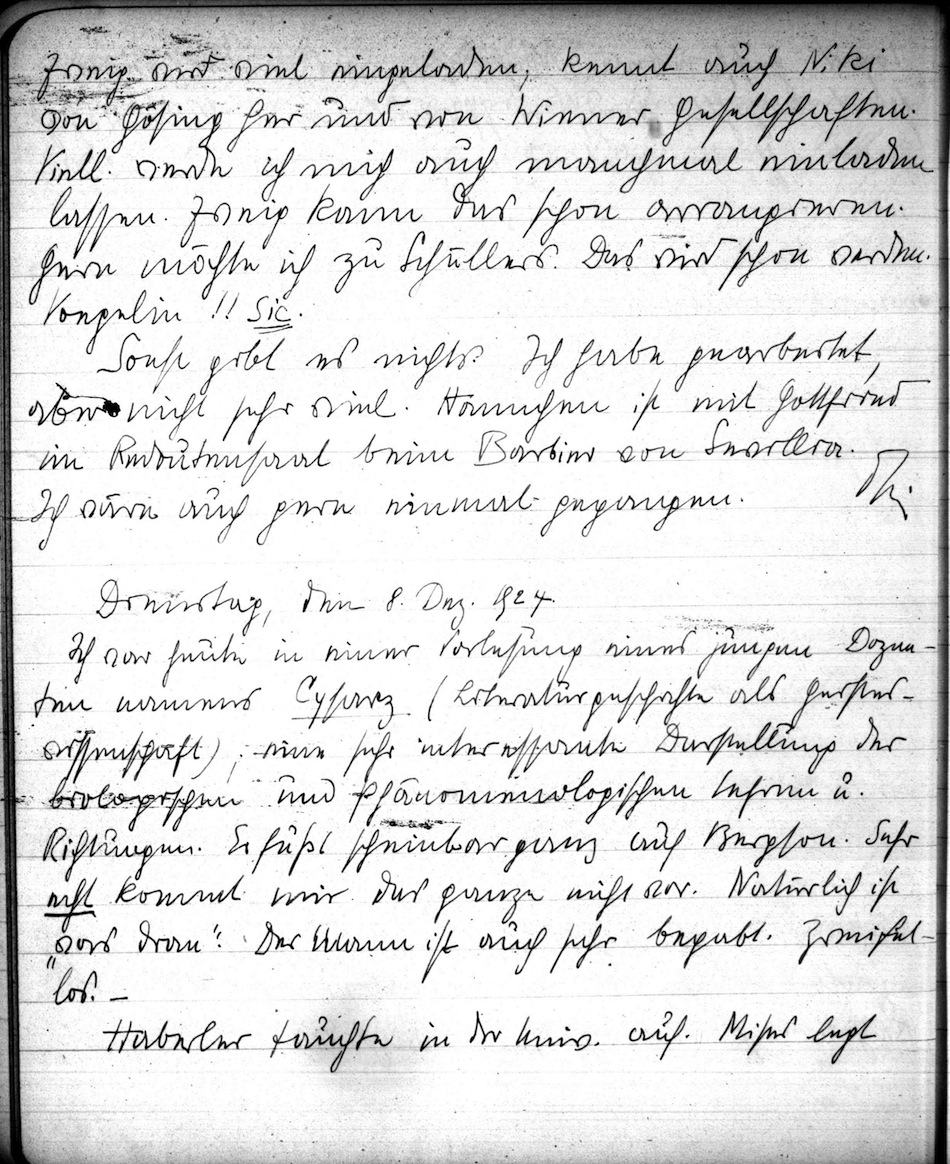 Zweig wird viel eingeladen, kennt auch Niki
von Gösing her und von Wiener Gesellschaften.
Viell. werde ich mich auch manchmal einladen
lassen. Zweig kann das schon arrangieren.
Gern möchte ich zu Schüllers. Das wird schon werden.
Voegelin !! Sic.
Sonst gibt es nichts. Ich habe gearbeitet,
aber nicht sehr viel. Hannchen ist mit Gottfried
im Redoutensaal beim Barbier von Sevilla.
Ich wäre auch gern einmal gegangen.
Dienstag, den 8. Dez. 1924.
Ich war heute in einer Vorlesung eines jungen Dozen-
ten namens Cysarz (Literaturgeschichte als Geistes-
wissenschaft), eine sehr interessante Darstellung der
biologischen und phänomenologischen Lehren u.
Richtungen. Er fußt scheinbar ganz auf Bergson. Sehr
echt kommt mir das ganze nicht vor. Natürlich ist
„was dran“. Der Mann ist auch sehr begabt. Zweifel-
los. –
Haberler tauchte in der Univ. auf. Mises legt